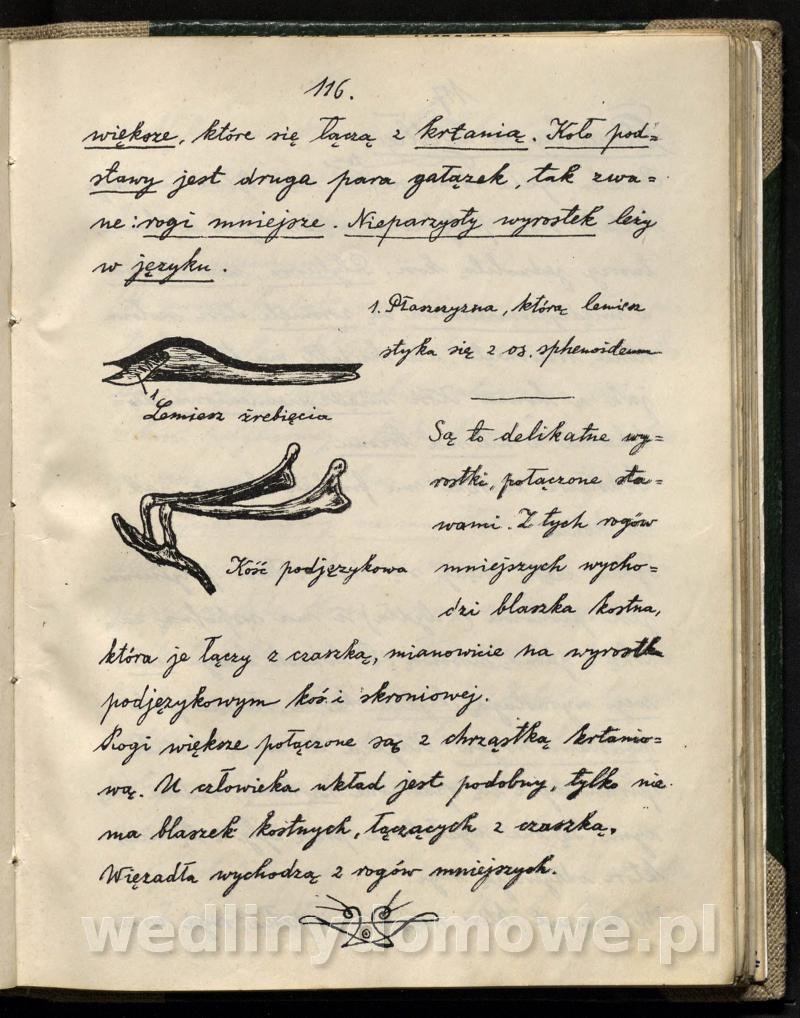 116.
większe, które się łączą z krtanią. Koło pod=
stawy jest druga para gałązek, tak zwa=
ne: rogi mniejsze. Nieparzysty wyrostek leży
w języku.
1. Płaszczyzna, którą lemiesz
styka się z os. sphenoideum
1
Lemiesz źrebięcia
Są to delikatne wy=
rostki, połączone sta=
wami. Z tych rogów
mniejszych wycho=
dzi blaszka kostna,
Kość podjęzykowa
która je łączy z czaszką, mianowicie na wyrostku
podjęzykowym kości skroniowej.
Rogi większe połączone są z chrząstką krtanio=
wą. U człowieka układ jest podobny, tylko nie
ma blaszek kostnych, łączących z czaszką.
Więzadła wychodzą z rogów mniejszych.
wedlinydomowe.pl